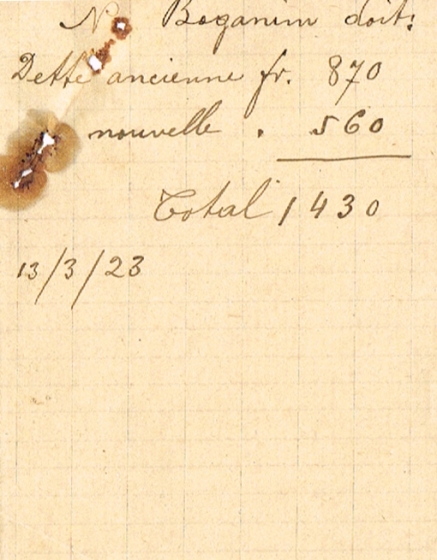 N Boganim doit:
Dette ancienne fr. 870
nouvelle . 560
Total 1430
13/3/23